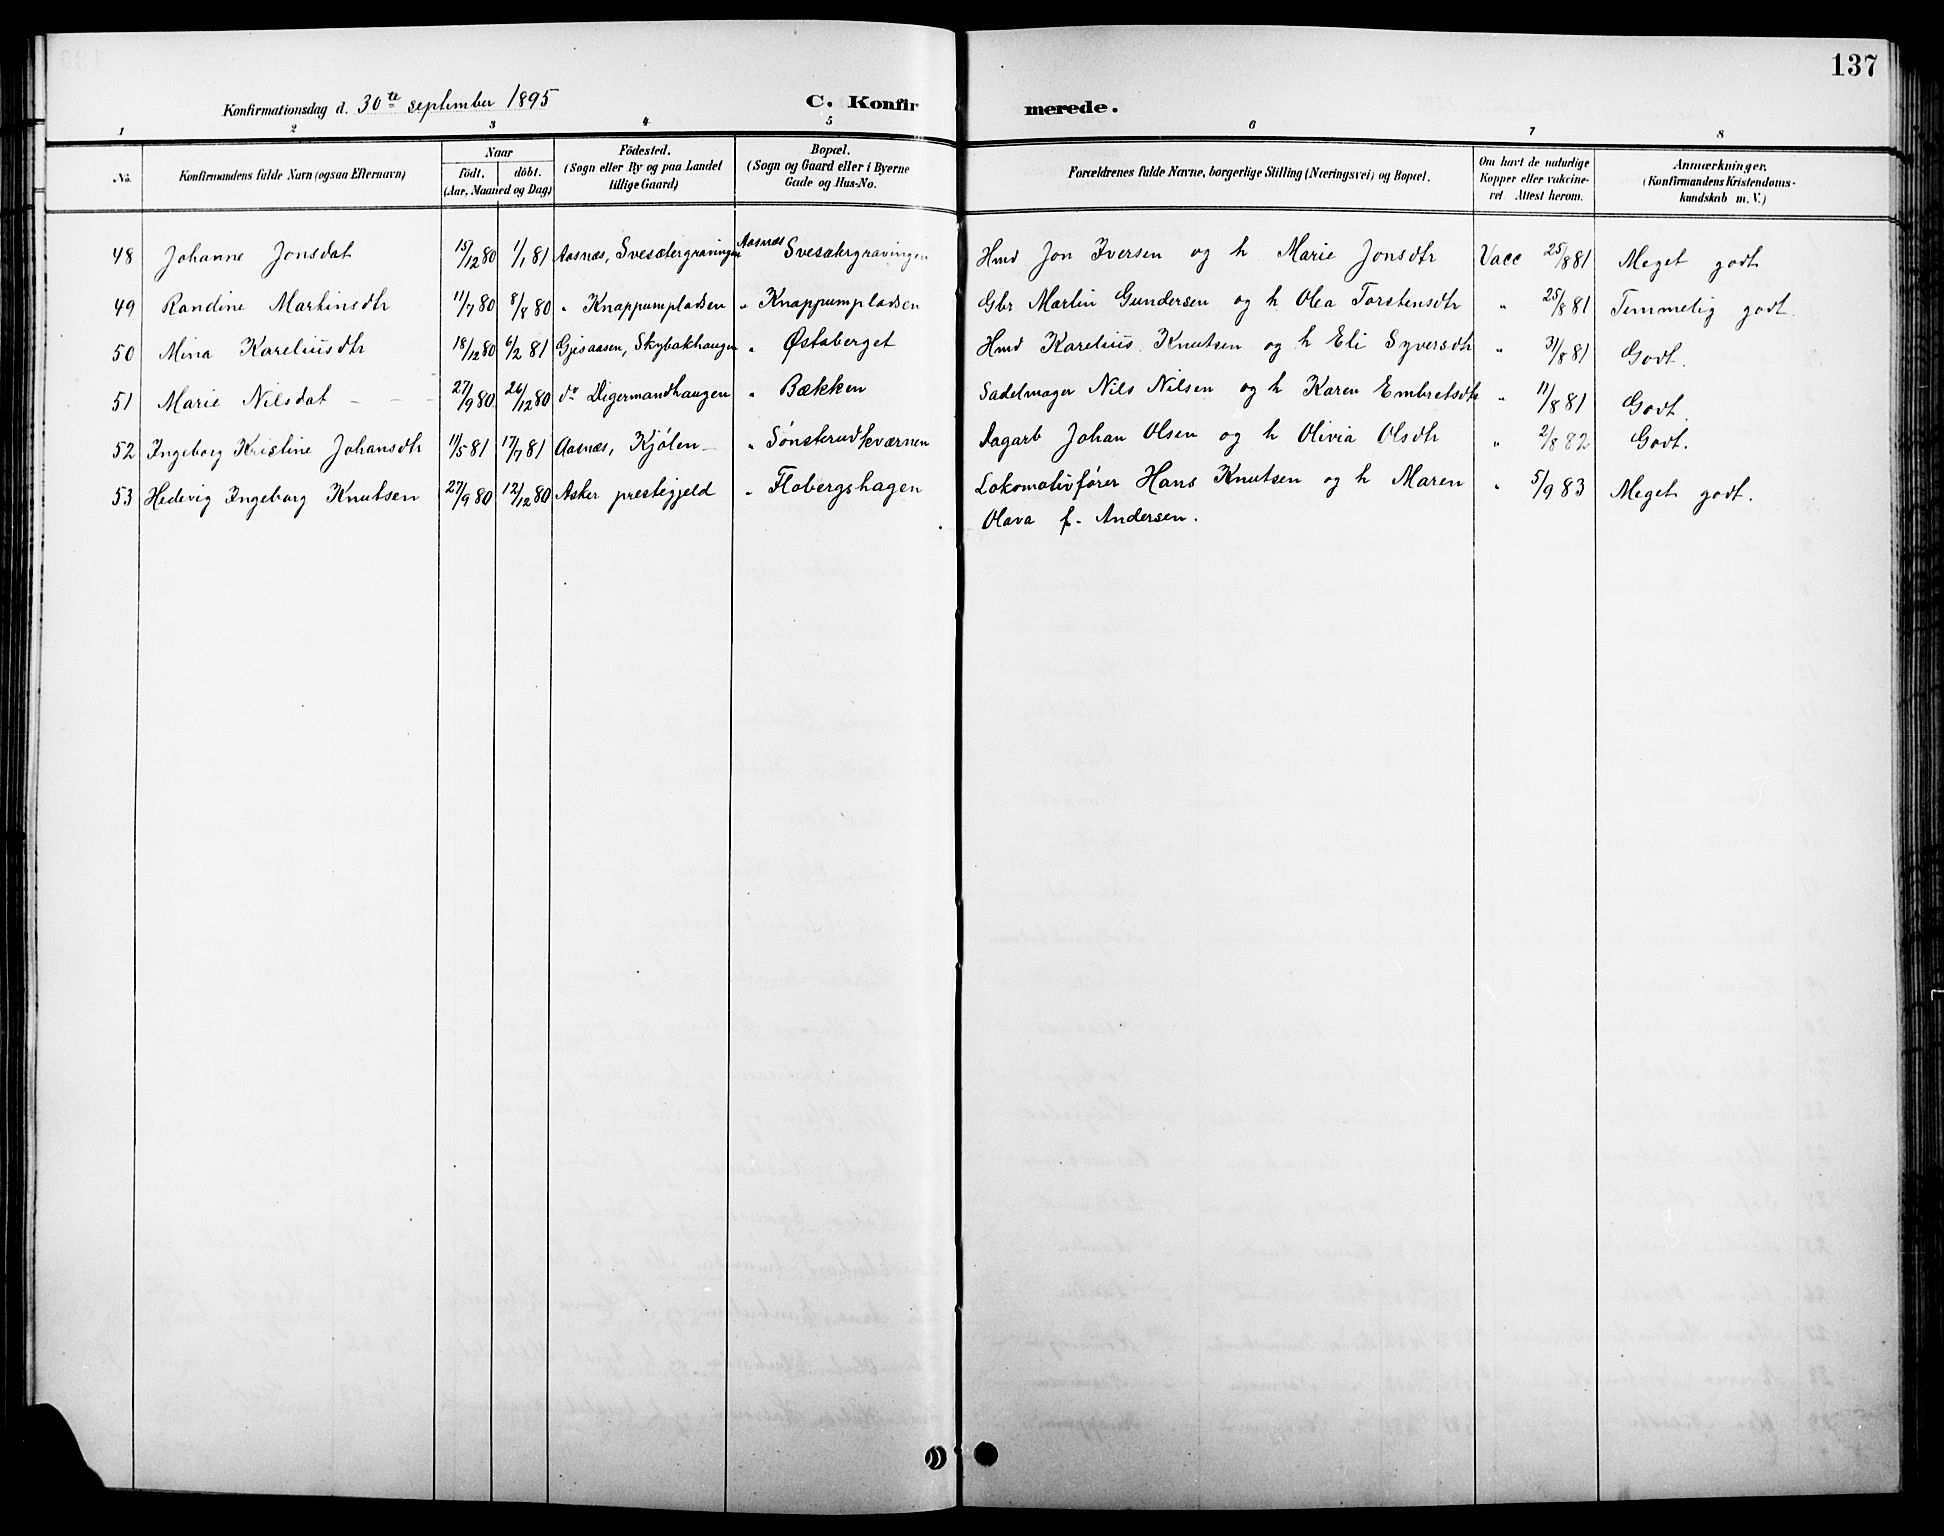 137
Konfirmationsdag d. 30te september 1895 C. Konfirmerede.
1 2 3 4 5 6 7 8
No. Konfirmandens fulde Navn (ogsaa Efternavn) Naar födt. döbt. (Aar, Maaned og Dag) Födested. (Sogn eller By og paa Landet tillige Gaard) Bopæl. (Sogn og Gaard eller i Byerne Gade og Hus-No. Forældrenes fulde Navne, borgerlige Stilling (Næringsvei) og Bopæl. Om havt de naturlige Kopper eller vakcineret. Attest herom. Anmærkninger, (Konfirmandens Kristendomskundskab m. V.)
48 Johanne Jonsdat 15/12 80 1/1 81 Aasnæs, Svesætergravingen Aasnæs Svesætergravingen Hmd Jon Iversen og h Marie Jonsdtr Vacc 25/8 81 Meget godt
49 Randine Martinsdtr 11/7 80 8/8 80 " Knappumpladsen " Knappumpladsen Gbr Martin Gundersen og h Olea Torstensdtr " 25/8 81 Temmelig godt.
50 Mina Kareliusdtr 18/12 80 6/2 81 Gjesaasen, Skybakhaugen " Østaberget Hmd Karelius Knutsen og h Eli Syversdtr " 31/8 81 Godt.
51 Marie Nilsdat - - - 27/9 80 26/12 80 do Digermandhaugen " Bækken Sadelmager Nils Nilsen og h Karen Embretsdtr " 11/8 81 Godt.
52 Ingeborg Kristine Johansdtr 11/5 81 17/7 81 Aasnæs, Kjölen - " Sönsterudkværnen Dagarb Johan Olsen og h Olivia Olsdtr " 2/8 82 Godt.
53 Hedevig Ingeborg Knutsen 27/9 80 12/12 80 Asker prestegjeld " Flobergshagen Lokomotivförer Hans Knutsen og h Maren " 5/9 83 Meget godt.
Olava f. Andersen.